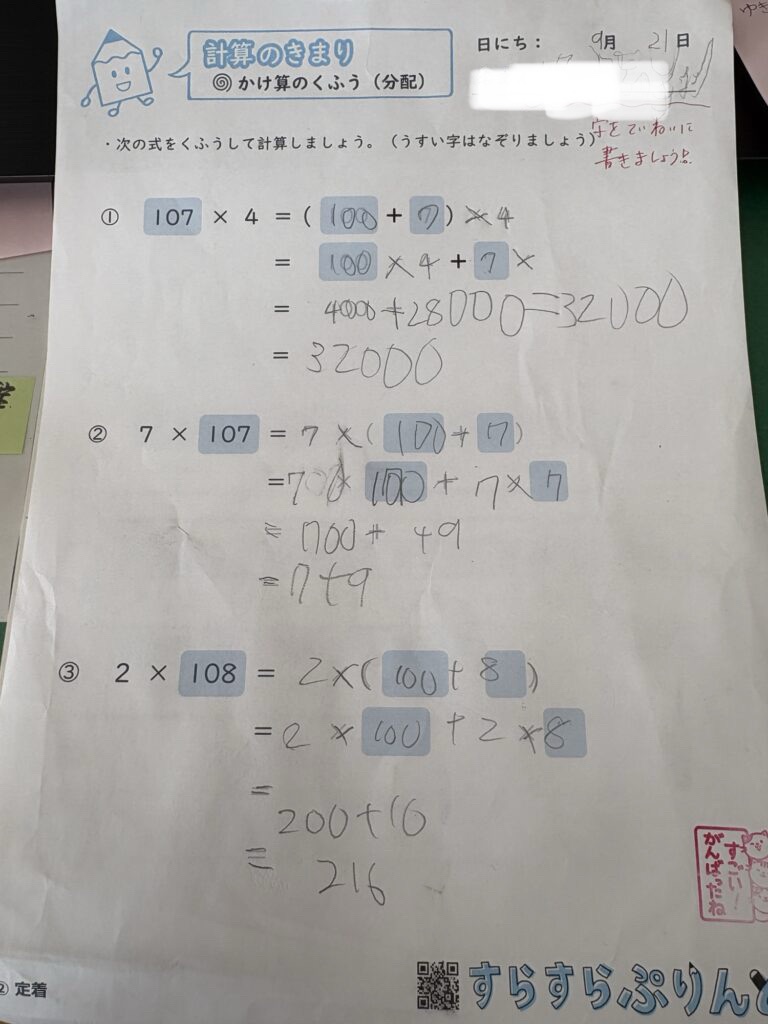 計算のきまり
かけ算のくふう（分配）
日にち： 9月 21日
・次の式をくふうして計算しましょう。（うすい字はなぞりましょう）
字をていねいに
書きましょう
① 107 × 4 = ( 100 + 7 ) × 4
= 100 × 4 + 7 ×
= 4000 + 28000 = 32000
= 32000
② 7 × 107 = 7 × ( 100 + 7 )
= 700 × 100 + 7 × 7
= 700 + 49
= 7+9
③ 2 × 108 = 2 × ( 100 + 8 )
= 2 × 100 + 2 × 8
=
200 + 16
= 216
すごい！
がんばったね
② 定着
すらすらぷりんと